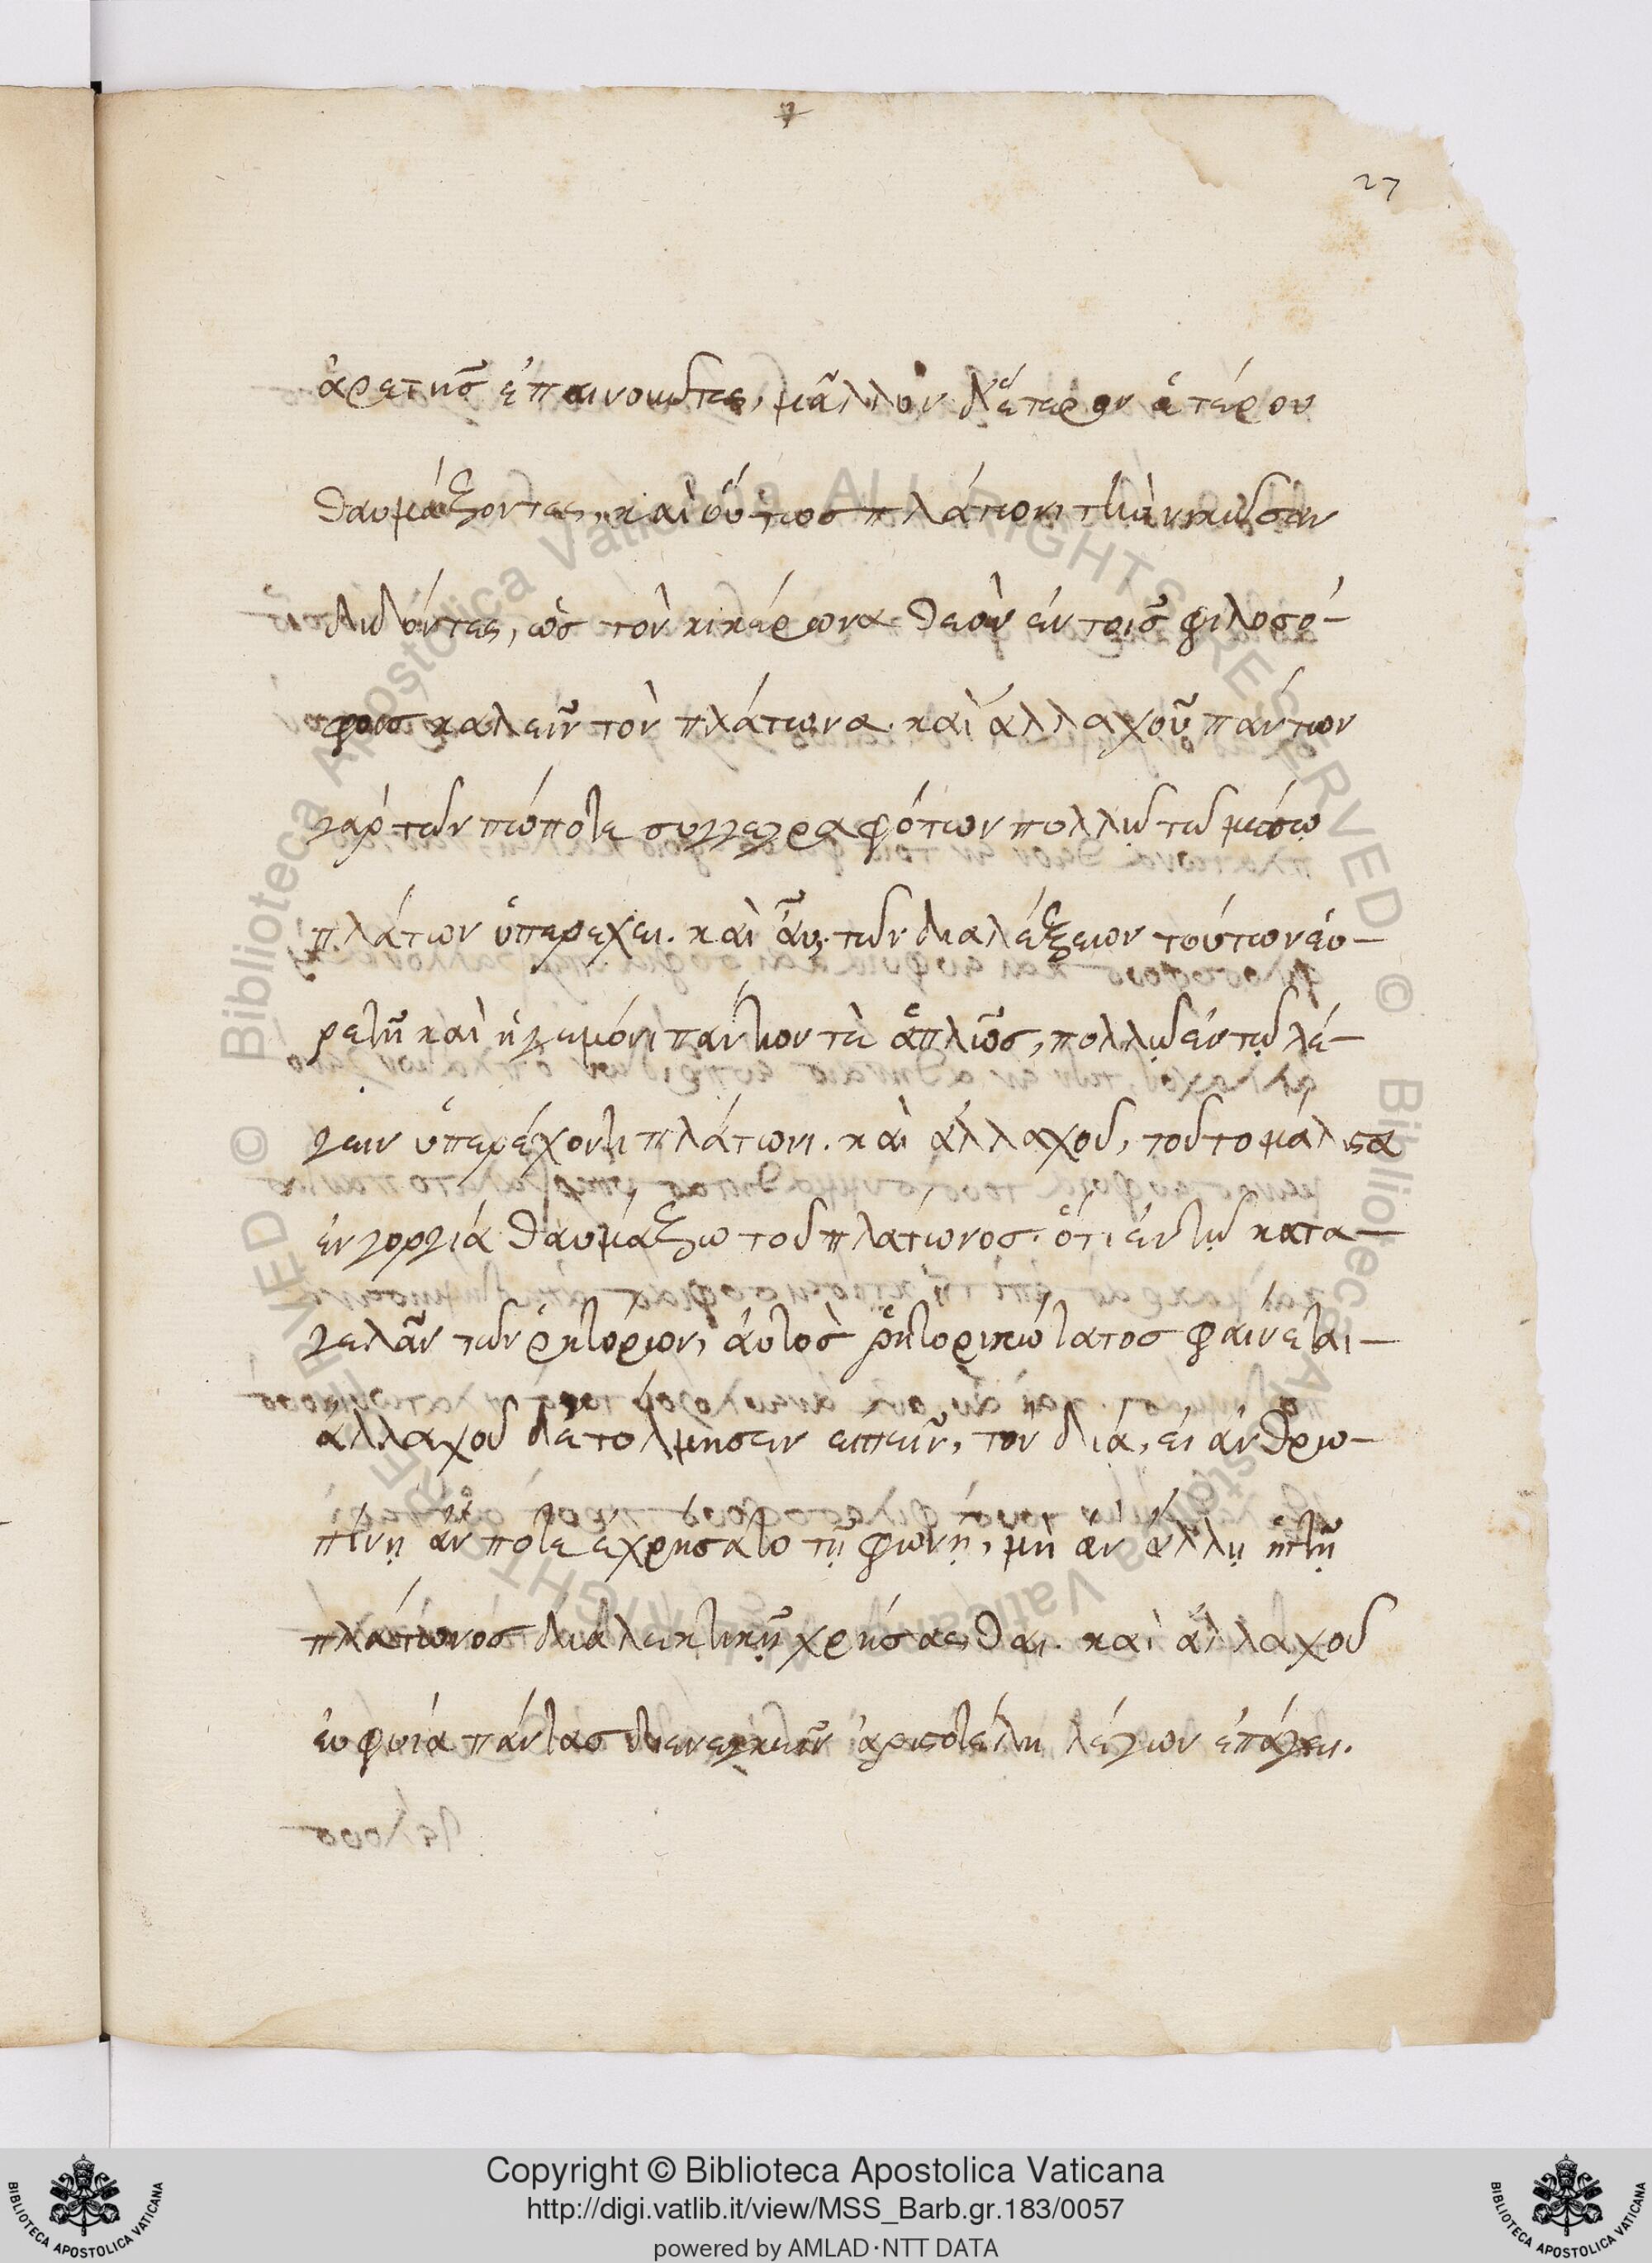 27
ἀρετῆς ἐπαινοῦντες, μᾶλλον δ' ἕτερον ἑτέρου
θαυμάζοντες, καὶ οὕτως πλάτωνι τὴν νικῶσαν
διδόντες, ὡς τὸν κικέρωνα θεὸν ἐν τοῖς φιλοσό-
φοις καλεῖν τὸν πλάτωνα. καὶ ἀλλαχοῦ πάντων
γὰρ τῶν πώποτε συγγεγραφότων πολλῷ τῷ μέσῳ
πλάτων ὑπερέχει. καὶ αὖ. τῶν διαλέξεων τούτων εὑ-
ρετῇ καὶ ἡγεμόνι πάντων τε ἁπλῶς, πολλῷ ἐν τῷ λέ-
γειν ὑπερέχοντι πλάτωνι. καὶ ἀλλαχοῦ, τοῦτο μάλιστα
ἐν γοργίᾳ θαυμάζω τοῦ πλάτωνος. ὅτι ἐν τῷ κατα-
γελᾶν τῶν ῥητόρων, αὐτὸς ῥητορικώτατος φαίνεται-
ἀλλαχοῦ δὲ τολμῆσειν εἰπεῖν, τὸν δία, εἰ ἀνθρω-
πίνῃ ἄν ποτε ἐχρήσατο τῇ φωνῇ, μὴ ἂν ἄλλῃ ἢ τῇ
πλάτωνος διαλεκτικῇ χρήσασθαι. καὶ ἀλλαχοῦ
εὐφυίᾳ πάντας διενεγκεῖν ἀριστοτέλη λέγων ἐπάγει.
Copyright © Biblioteca Apostolica Vaticana
http://digi.vatlib.it/view/MSS_Barb.gr.183/0057
powered by AMLAD·NTT DATA
BIBLIOTECA APOSTOLICA VATICANA
BIBLIOTECA APOSTOLICA VATICANA